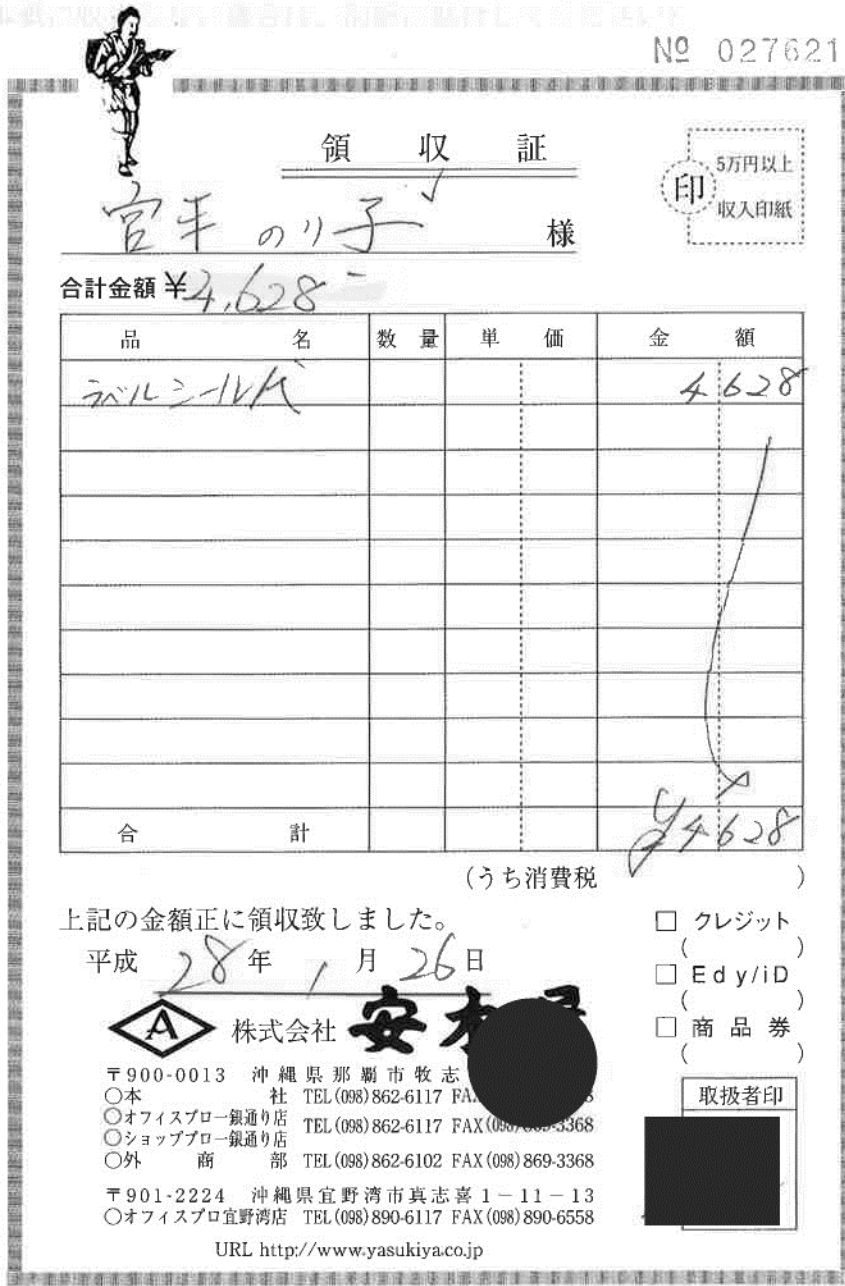 № 027621
領収証
5万円以上
印
収入印紙
宮平 のり子 様
合計金額 ¥4,628-
品名 数量 単価 金額
ラベルシール代 4 628
合計 ¥4 628
(うち消費税 )
上記の金額正に領収致しました。
平成 28年 1月 26日
□ クレジット
( )
□ Edy/iD
( )
□ 商品券
( )
A 株式会社 安木
〒900-0013 沖縄県那覇市牧志
○本社 TEL(098)862-6117
○オフィスプロ一銀通り店
○ショッププロ一銀通り店 TEL(098)862-6117 FAX(098)869-3368
○外商部 TEL(098)862-6102 FAX(098)869-3368
〒901-2224 沖縄県宜野湾市真志喜1-11-13
○オフィスプロ宜野湾店 TEL(098)890-6117 FAX(098)890-6558
URL http://www.yasukiya.co.jp
取扱者印